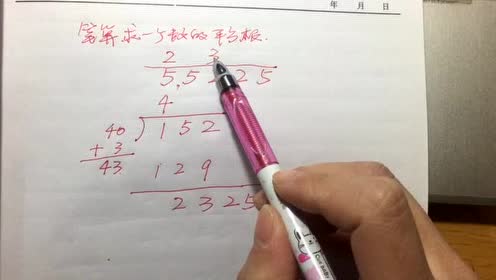 年 月 日
笔算求一个数的平方根.
2 3
5,5225
4
40 ) 152
+ 3
43 129
2325